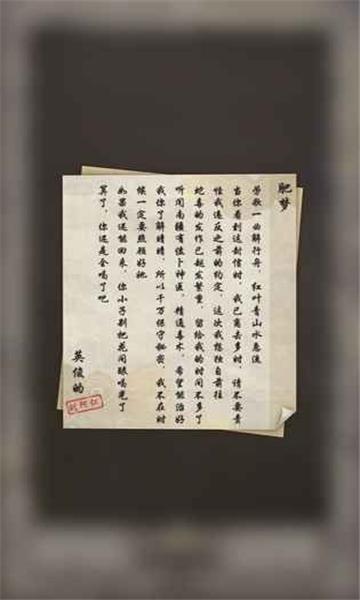 肥梦
劳歌一曲解行舟，红叶青山水急流
当你看到这封信时，我已离去多时，请不要责
怪我违反之前的约定，这次我想独自前往
蛇毒的发作已越发繁重，留给我的时间不多了
听闻南疆有位卜神医，精通毒术，希望能治好
我 你了解，所以千万保守秘密，我不在时
候一定要照顾好她
如果我还能回来，你小子别把花间眠喝光了
算了，你还是全喝了吧
英俊的